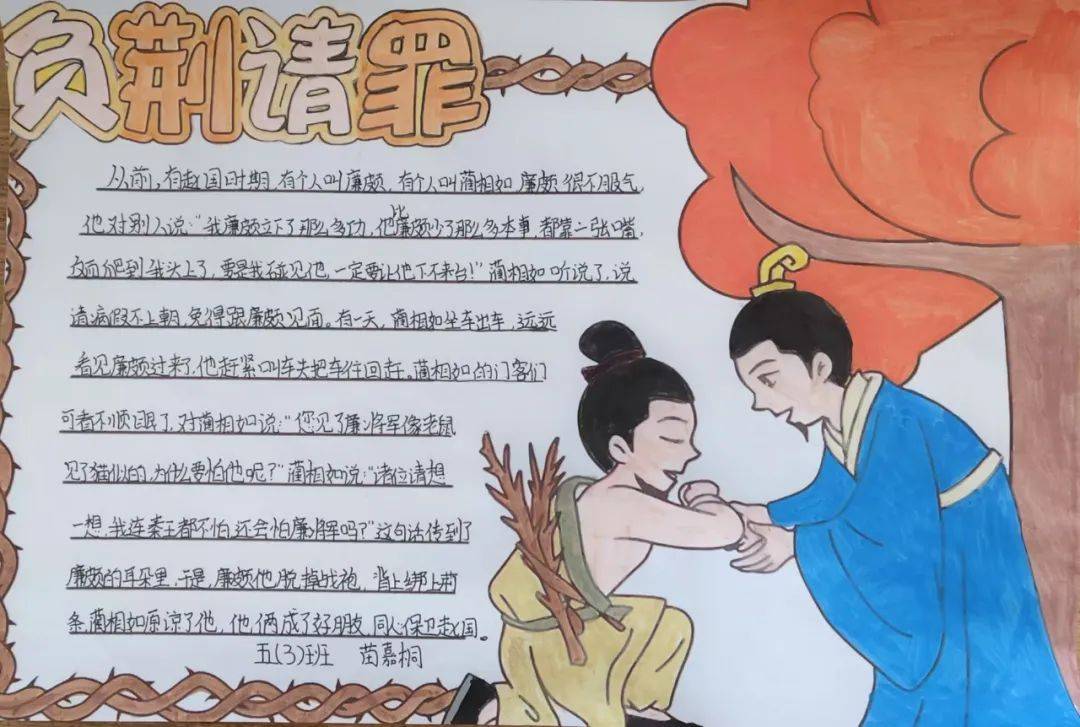 负荆请罪
从前,有赵国时期,有个人叫廉颇,有个人叫蔺相如 廉颇很不服气,
他对别人说:“我廉颇立下了那么多功,他比廉颇少了那么多本事,都靠一张嘴,
反而爬到我头上了,要是我碰见他,一定要让他下不来台!”蔺相如听说了,说
请病假不上朝,免得跟廉颇见面。有一天,蔺相如坐车出车,远远
看见廉颇过来了,他赶紧叫车夫把车往回赶。蔺相如的门客们
可看不顺眼了,对蔺相如说:“您见了廉将军像老鼠
见了猫似的,为什么要怕他呢?”蔺相如说:“诸位请想
一想,我连秦王都不怕,还会怕廉将军吗?”这句话传到了
廉颇的耳朵里,于是,廉颇他脱掉战袍,背上绑上荆
条,蔺相如原谅了他,他俩成了好朋友,同心保卫赵国。
五(3)班 苗嘉桐